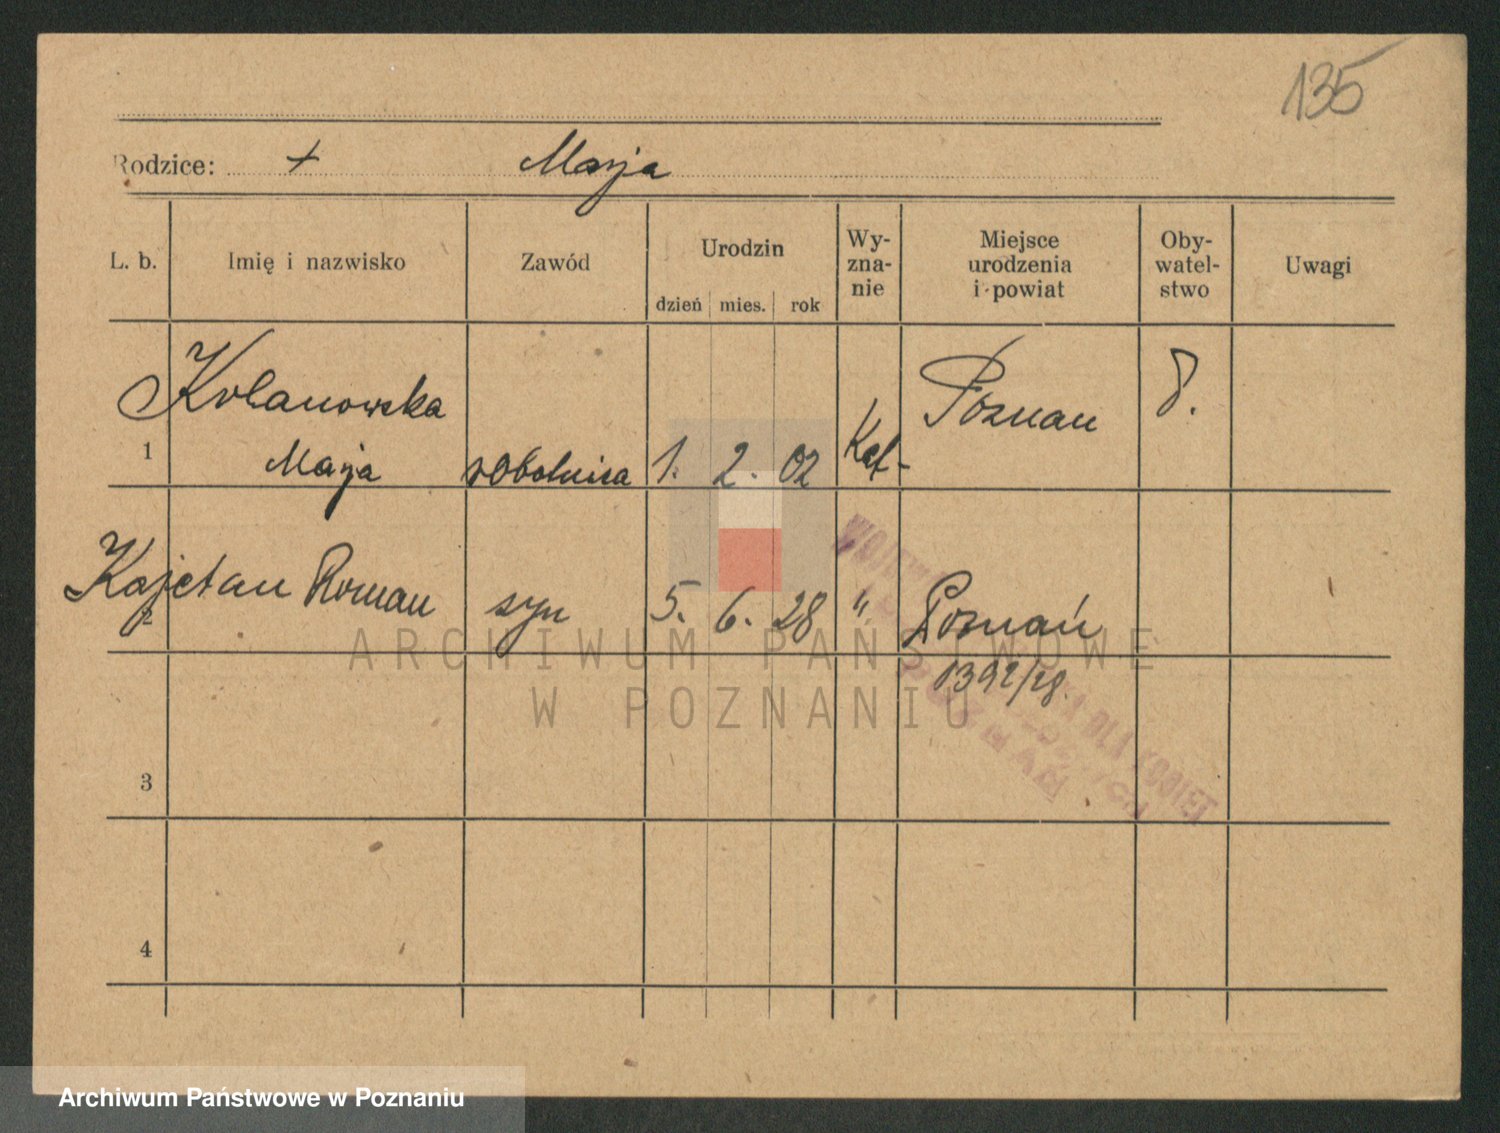 135
Rodzice: + Marja
L. b. Imię i nazwisko Zawód Urodzin dzień mies. rok Wy-zna-nie Miejsce urodzenia i powiat Oby-watel-stwo Uwagi
Kolanowska
1 Marja robotnica 1. 2. 02 Kat- Poznan
2 Kajetan Roman syn 5. 6. 28 " Poznań
1392/28.
3
4
DLA KOBIET
ARCHIWUM PAŃSTWOWE
W POZNANIU
Archiwum Państwowe w Poznaniu